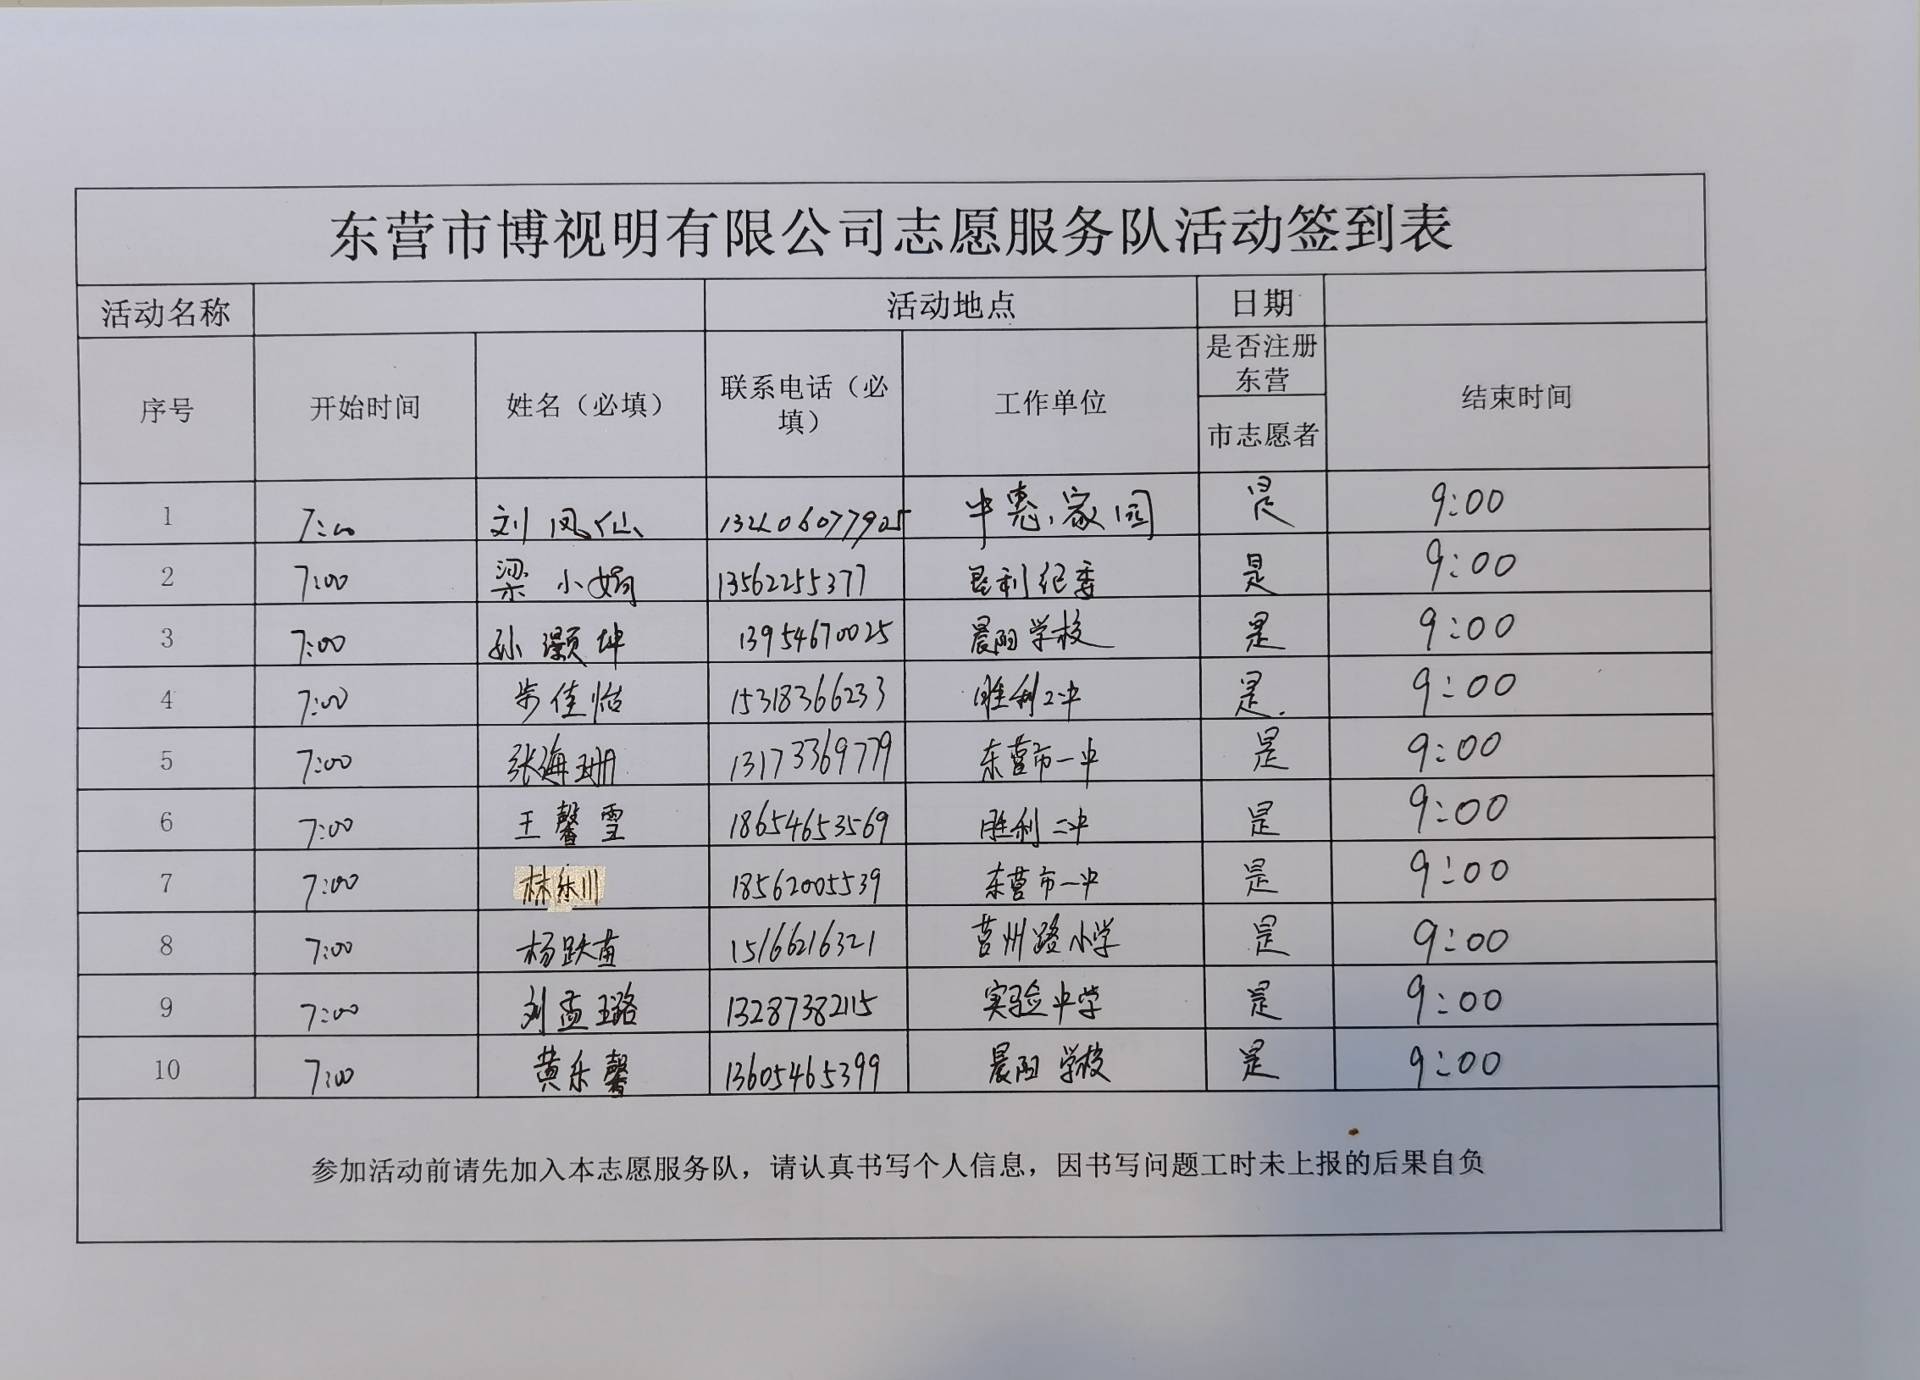 东营市博视明有限公司志愿服务队活动签到表
活动名称 活动地点 日期
序号 开始时间 姓名（必填） 联系电话（必填） 工作单位 是否注册东营市志愿者 结束时间
1 7:00 刘凤仙 中惠家园 是 9:00
2 7:00 梁小娟 13562255377 垦利纪委 是 9:00
3 7:00 孙灏坤 13954670025 晨阳学校 是 9:00
4 7:00 步佳怡 15318366233 胜利二中 是 9:00
5 7:00 张海珊 13173369779 东营市一中 是 9:00
6 7:00 王馨雪 18654653569 胜利二中 是 9:00
7 7:00 林乐川 18562005539 东营市一中 是 9:00
8 7:00 杨跃苗 15166216321 莒州路小学 是 9:00
9 7:00 刘孟璐 13287382115 实验中学 是 9:00
10 7:00 黄乐馨 13605465399 晨阳学校 是 9:00
参加活动前请先加入本志愿服务队，请认真书写个人信息，因书写问题工时未上报的后果自负